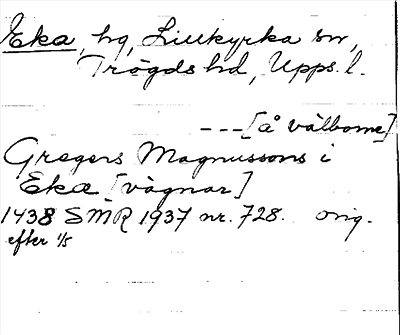 Eka, hg, Litslkyrka sn,
Trögds hd, Upps. l.
---[å välborne]
Gregers Magnussons i
Ekæ [vägnar]
1438 SMR 1937 nr. 728. orig.
efter 1/5